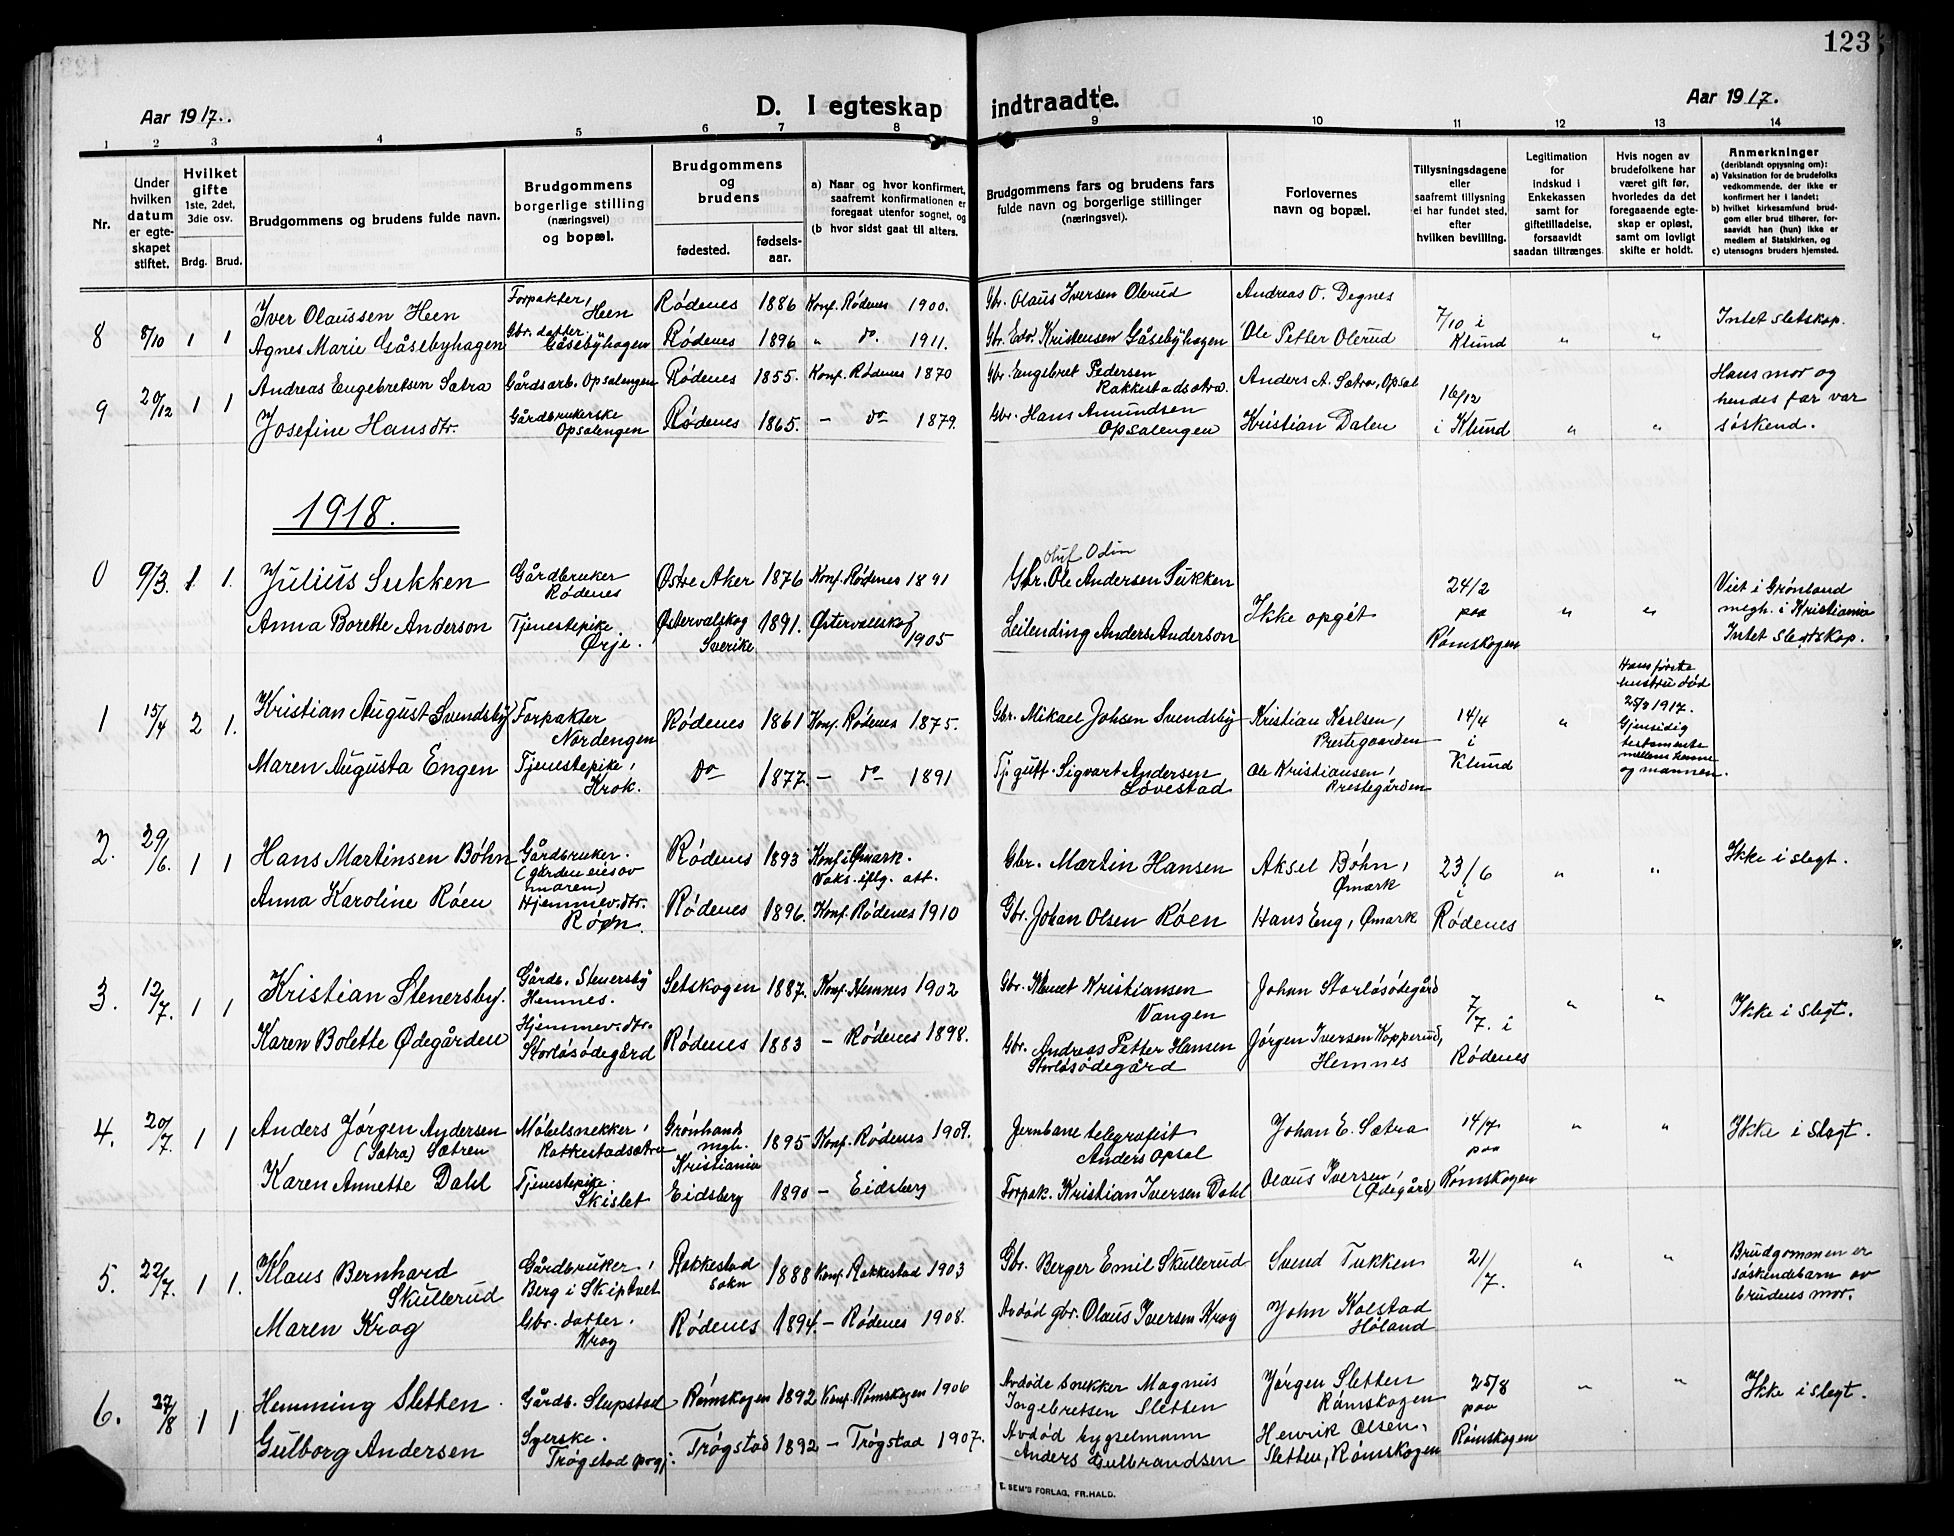 123
Aar 1917.
D. I egteskap indtraadte.
Aar 1917.
1 2 3 4 5 6 7 8 9 10 11 12 13 14
Nr.
Under hvilken datum er egteskapet stiftet.
Hvilket gifte 1ste, 2det, 3die osv.
Brdg. Brud.
Brudgommens og brudens fulde navn.
Brudgommens borgerlige stilling (næringsvei) og bopæl.
Brudgommens og brudens
fødested. fødsels-aar.
a) Naar og hvor konfirmert, saafremt konfirmationen er foregaat utenfor sognet, og
(b hvor sidst gaat til alters.
Brudgommens fars og brudens fars fulde navn og borgerlige stillinger (næringsvei).
Forlovernes navn og bopæl.
Tillysningsdagene eller saafremt tillysning ei har fundet sted, efter hvilken bevilling.
Legitimation for indskud i Enkekassen samt for giftetilladelse, forsaavidt saadan tiltrænges.
Hvis nogen av brudefolkene har været gift før, hvorledes da det foregaaende egteskap er opløst, samt om lovligt skifte er holdt.
Anmerkninger (deriblandt oplysning om):
a) Vaksination for de brudefolks vedkommende, der ikke er konfirmert her i landet;
b) hvilket kirkesamfund brudgom eller brud tilhører, forsaavidt han (hun) ikke er medlem af Statskirken, og
c) utensogns bruders hjemsted.
8 8/10 1 1 Iver Olaussen Heen Forpakter, Heen Rødenes 1886 Konf. Rødenes 1900. Gbr. Olaus Iversen Olerud Andreas O. Degnes 7/10 i Klund " " Intet sletskap.
Agnes Marie Gåsebyhagen Gbr. datter. Gåsebyhagen Rødenes 1896 " do. 1911. Gbr. Edv. Kristensen Gåsebyhagen Ole Petter Olerud
9 20/12 1 1 Andreas Engebretsen Sætra Gårdsarb. Opsalengen Rødenes 1855. Konf. Rødenes 1870 Gbr. Engebret Pedersen Rakkestadsætra. Anders A. Sætra, Opsal 16/12 i Klund " " Hans mor og hendes far var søskend.
Josefine Hansdtr. Gårdbrukerske Opsalengen Rødenes 1865. — do 1879. Gbr. Hans Amundsen Opsalengen Kristian Dalen
1918.
0 9/3. 1. 1. Julius Sukken Gårdbruker Rødenes Østre Aker 1876 Konf. Rødenes 1891 Oluf Odin Gbr. Ole Andersen Sukken Ikke opgét 24/2 paa Rømskogen " " Viet i Grønland megh. i Kristiania Intet slegtskap.
Anna Borette Anderson Tjenestepike Ørje. Østervalskog Sverike 1891. Østervallskog 1905 Leilending Anders Anderson
1 15/4 2 1. Kristian August Svendsby Forpakter Nordengen Rødenes 1861 Konf. Rødenes 1875. Gbr. Mikael Johsen Svendsby Kristian Karlsen, Prestegaarden 14/4 i Klund " Hans første hustru død 1917. Gjensidig testamente mellem henne og mannen.
Maren Augusta Engen Tjenestepike, Krok. do 1877. — do 1891 Tj gutt. Sigvart Andersen Løvestad Ole Kristiansen, Prestegården
2. 29/6. 1 1 Hans Martinsen Bøhn Gårdbruker. (gården eies av maren) Rødenes 1893 Konf. i Ømark. Vaks. iflg. att. Gbr. Martin Hansen Aksel Bøhn, Ømark 23/6 i Rødenes " " Ikke i slegt.
Anna Karoline Røen Hjemmev. dtr. Røen. Rødenes 1896. Konf. Rødenes 1910 Gbr. Johan Olsen Røen Hans Eng, Ømark
3. 12/7. 1 1 Kristian Stenersby. Gårdb. Stenersby Hemnes. Setskogen 1887. Konf. Hemnes 1902 Gbr. Knut Kristiansen Vangen Johan Storløsødegård 7/7. i Rødenes " " Ikke i slegt.
Karen Bolette Ødegården Hjemmev. dtr. Storløsødegård Rødenes 1883 — Rødenes 1898. Gbr. Andreas Petter Hansen Storløsødegård Jørgen Iversen Kopperud, Hemnes
4. 20/7. 1 1 Anders Jørgen Andersen (Sætra) Sætren Møbelsnekker, Rakkestadsætra Grønlands megh. Kristiania 1895 Konf. Rødenes 1909. Jernbane telegrafist Anders Opsal Johan E. Sætra 14/7 paa Rømskogen " " Ikke i slegt.
Karen Annette Dahl Tjenestepike. Skislet Eidsberg 1890 — Eidsberg Forpak. Kristian Iversen Dahl Olaus Iversen, (Ødegård)
5. 22/7. 1 1. Klaus Bernhard Skullerud Gårdbruker, Berg i Skiptvet Rakkestad sokn 1888 Konf. Rakkestad 1903 Gbr. Berger Emil Skullerud Svend Tukken 21/7. " " Brudgommen er søskendebarn av brudens mor.
Maren Krog Gbr. datter. Krog Rødenes 1894. — Rødenes 1908. Avdød gbr. Olaus Iversen Krog John Kolstad Høland
6. 27/8 1 1 Hemming Sletten Gårdb. Slupstad Rømskogen 1892 Konf. Rømskogen 1906 Avdøde snekker Magnus Ingebretsen Sletten Jørgen Sletten Rømskogen 25/8 paa Rømskogen " " Ikke i slegt.
Gulborg Andersen Syerske. Trøgstad pogj. Trøgstad 1892 — Trøgstad 1907. Avdød bygselmann Anders Gulbrandsen Henrik Olsen, Sletten, Rømskogen
E. SEM'S FORLAG, FR.HALD.